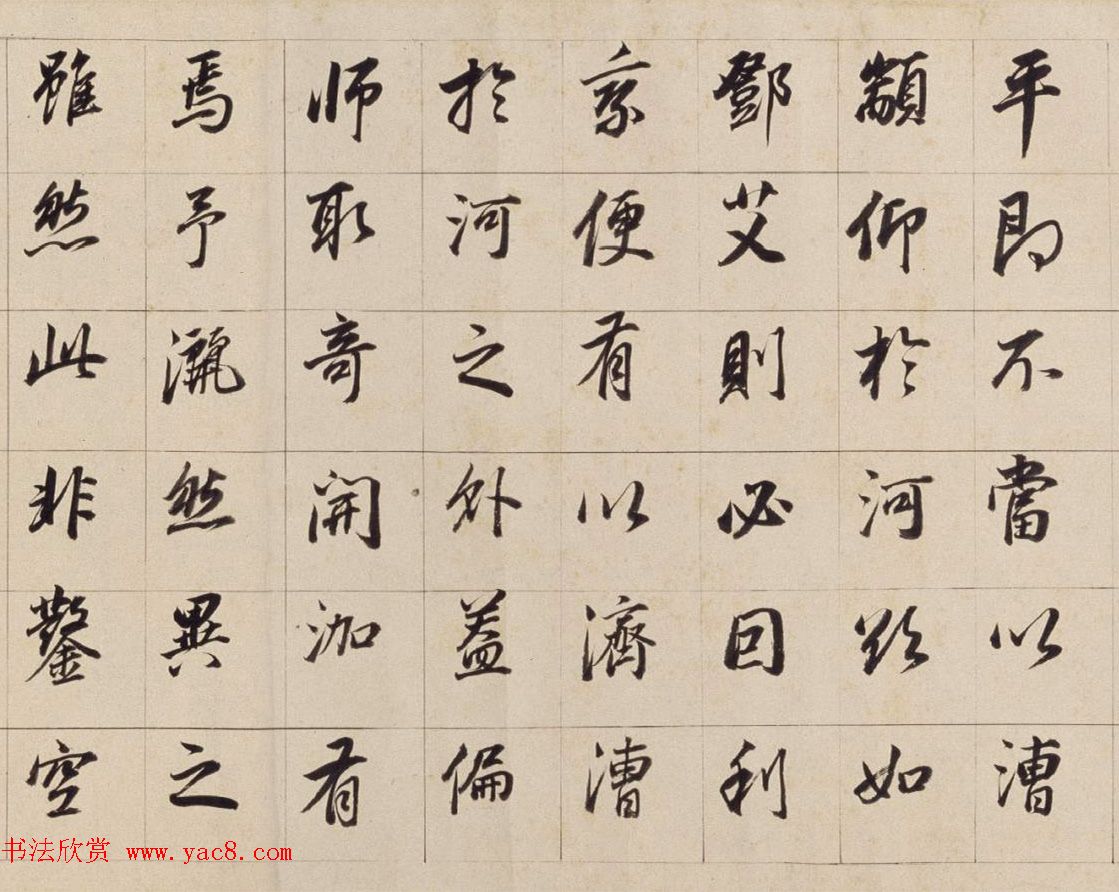 平即不當以漕
顓仰於河欤如
鄧艾則必因利
乘便有以濟漕
於河之外蓋偏
师取奇開泇有
焉予灑然異之
雖然此非鑿空
书法欣赏 www.yac8.com